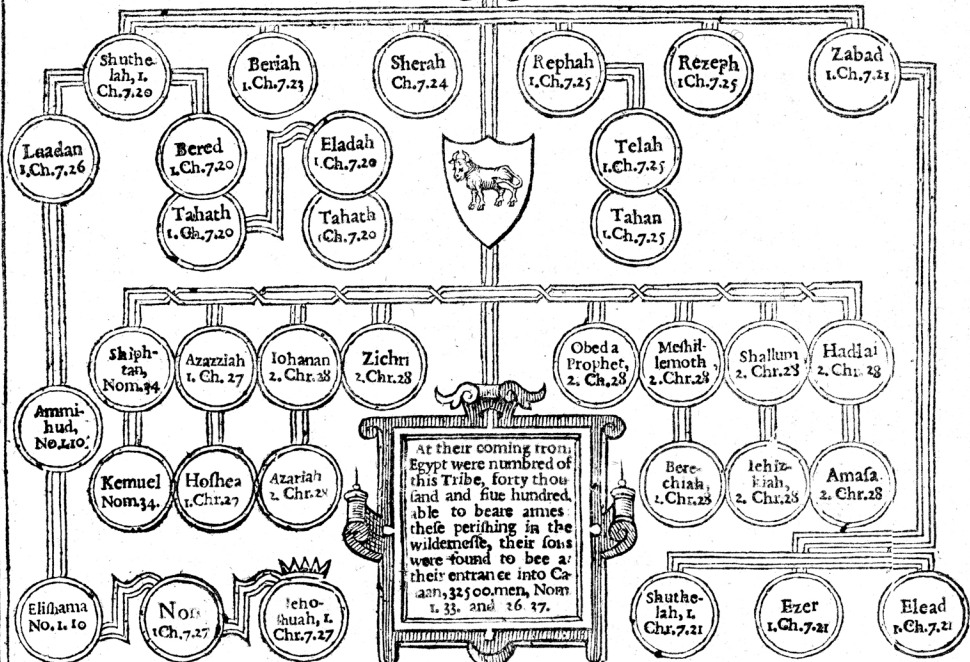 Shuthe-
lah, 1.
Ch.7.20
Beriah
1.Ch.7.23
Sherah
Ch.7.24
Rephah
1.Ch.7.25
Rezeph
1.Ch.7.25
Zabad
1.Ch.7.21
Laadan
1.Ch.7.26
Bered
1.Ch.7.20
Eladah
1.Ch.7.20
Telah
1.Ch.7.25
Tahath
1.Ch.7.20
Tahath
1Ch.7.20
Tahan
1.Ch.7.25
Shiph-
tan,
Nom.34
Azazziah
1. Ch. 27
Iohanan
2. Chr.28
Zichri
2.Chr.28
Obed a
Prophet,
2. Ch.28
Meſhil-
lemoth,
2.Chr.28
Shallum
2.Chr.28
Hadlai
2. Chr. 28
Ammi-
hud,
No.1.10.
Kemuel
Nom.34.
Hoſhea
1.Chr.27
Azariah
2. Chr.28
Bere-
chiah,
2.Chr.28
Iehiz-
kiah,
2. Chr.28
Amaſa.
2. Chr.28
At their coming from
Egypt were numbred of
this Tribe, forty thou
ſand and fiue hundred,
able to beare armes:
theſe periſhing in the
wilderneſſe, their ſons
were found to bee at
their entrance into Ca-
naan, 32500.men, Nom
1. 33. and 26. 37.
Eliſhama
No. 1. 10
Non
1Ch.7.27
Ieho-
ſhuah, 1.
Chr.7.27
Shuthe-
lah, 1
Chr.7.21
Ezer
1.Ch.7.21
Elead
1.Ch.7.21